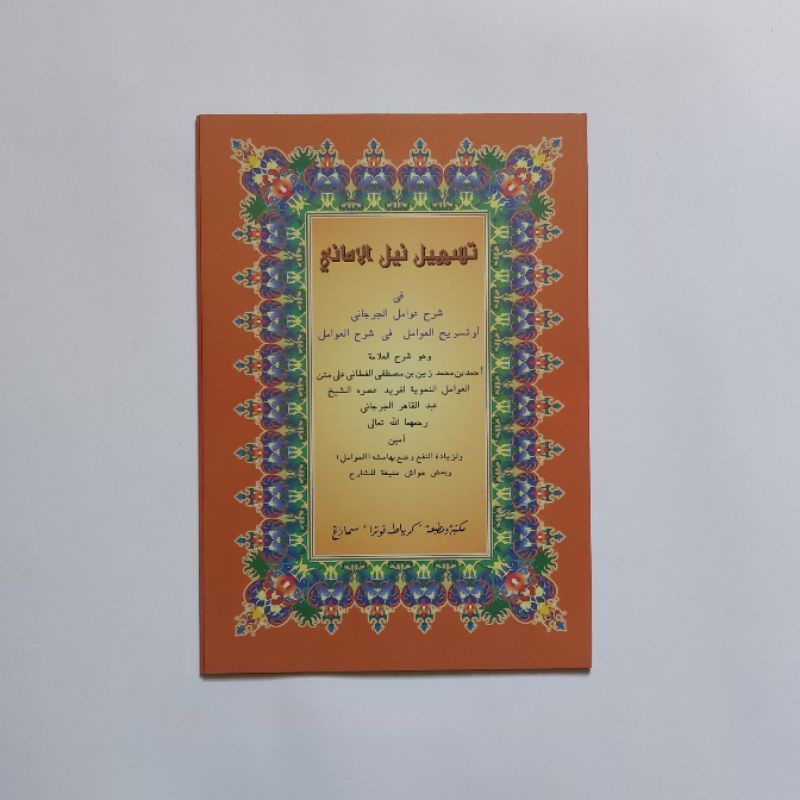 تسهيل نيل الاماني
فى
شرح عوامل الجرجانى
أو تسريح العوامل فى شرح العوامل
وهو شرح العلامة
أحمد بن محمد زين بن مصطفى الفطانى على متن
العوامل النحوية لفريد عصره الشيخ
عبد القاهر الجرجانى
رحمهما الله تعالى
أمين
ولزيادة النفع وضع بهامشه (العوامل)
وبعض حواش منيفة للشارح
مكتبة ومطبعة "كرياطه فوترا" سماراغ